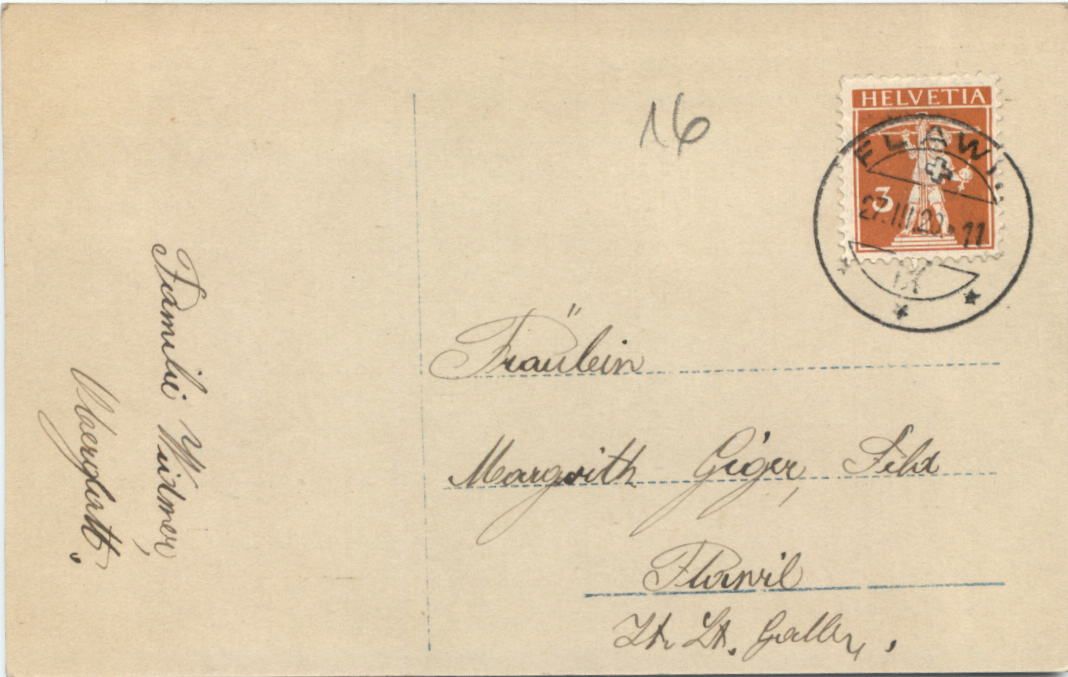 16
HELVETIA
3
FLAWIL
27.III.20.11
Familie Widmer,
Fräulein
Margrith Giger, Feld
Flawil
Kt. St. Gallen.